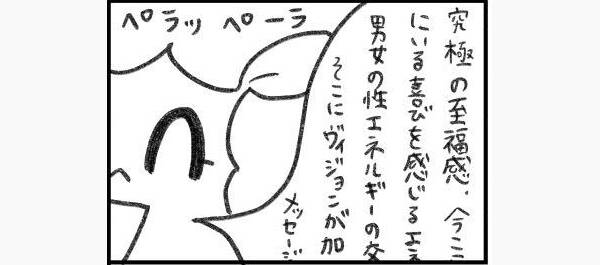 ペラッ ペーラ
究極の至福感、今ここ
にいる喜びを感じるエネ
男女の性エネルギーの交
そこにヴィジョンが加
メッセージ